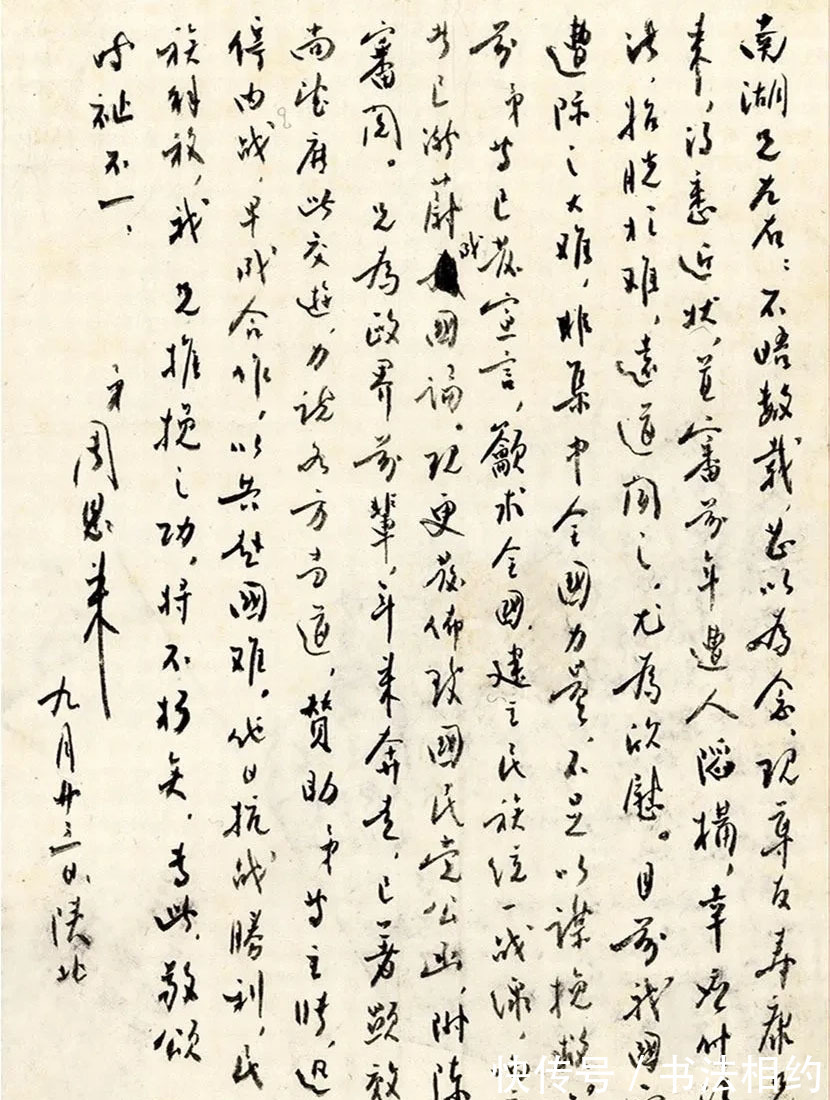 南湖兄左右：不晤数载，甚以为念。现章友奉康兄
来，得悉近状，并审前年遭人陷构，幸而时
法，始脱于难，远道闻之，尤为欣慰。目前我国
遭际之大难，非集中全国力量，不足以谋挽救。
前弟等已发宣言，籲求全国建立民族统一战线，
者已渐蔚成国论。现更发佈致国民党公函，附陈
審阅。兄为政界前輩，年来奔走，已著顕效
尚望廣此交遊，力说各方当道，赞助弟等主張，迅
停内战，早成合作，以共赴國难。他日抗战勝利，民
族解放，我兄推挽之功，将不朽矣。专此，敬颂
时祉不一。
弟周恩来
九月廿三日陕北
快传号/书法相约